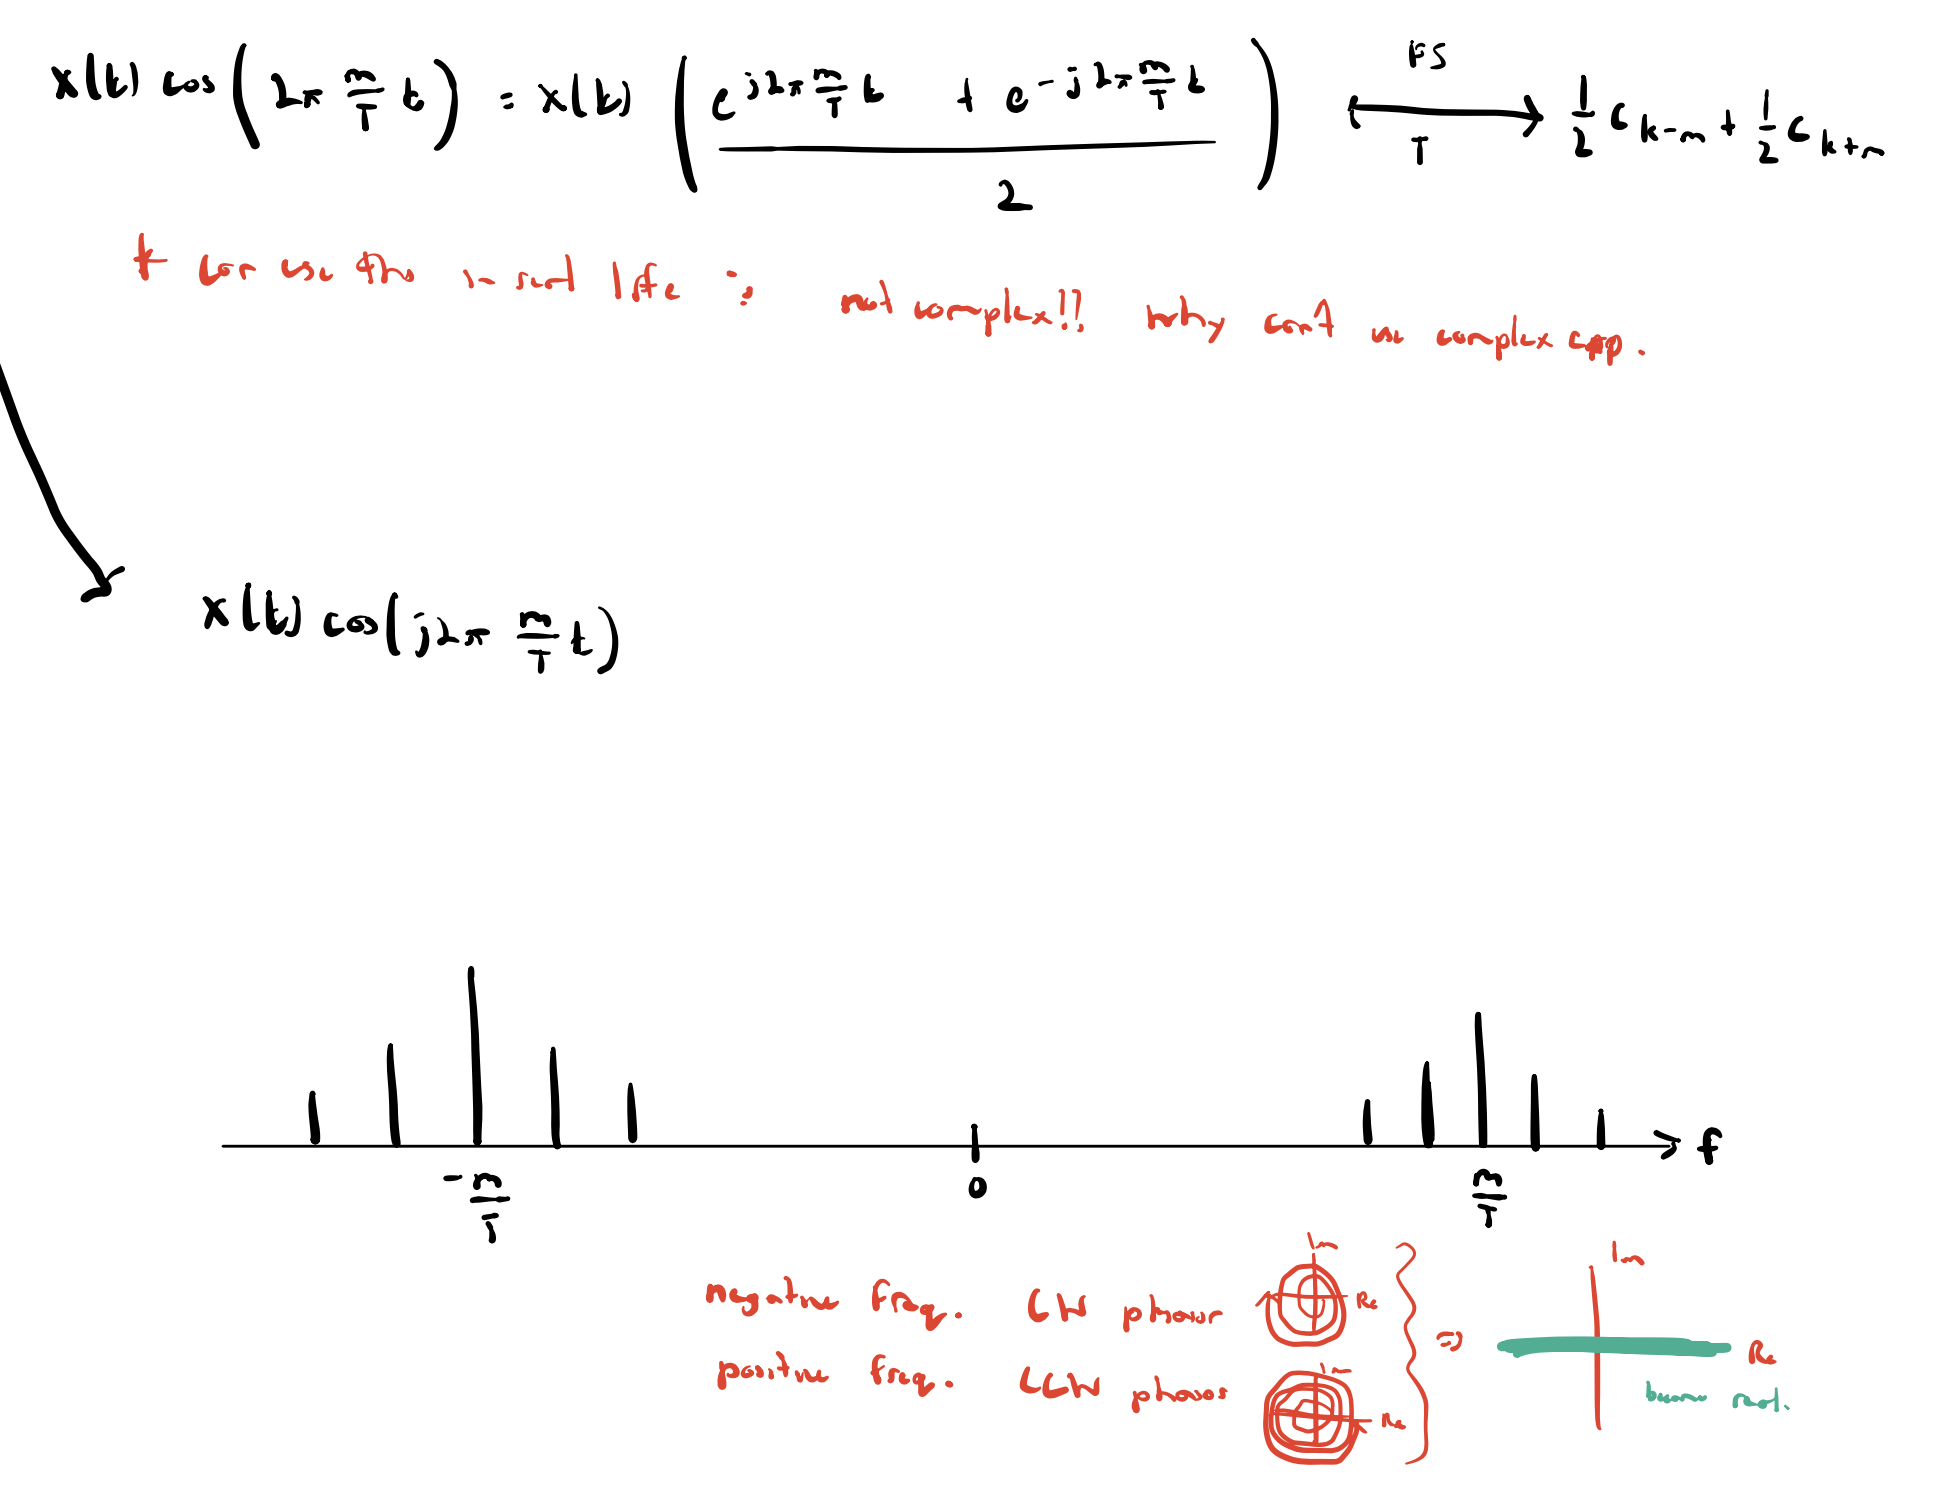 x(t) cos(2π m/T t) = x(t) ( (e^{j2π m/T t} + e^{-j2π m/T t}) / 2 ) ⟷ FS T 1/2 c_{k-m} + 1/2 c_{k+m}
* can use this in real life : not complex!! why can't use complex exp.
x(t) cos(j2π m/T t)
f
-m/T 0 m/T
negative freq. CW phasor Im Re
positive freq. CCW phasor Im Re
⇒ Im Re
become real.